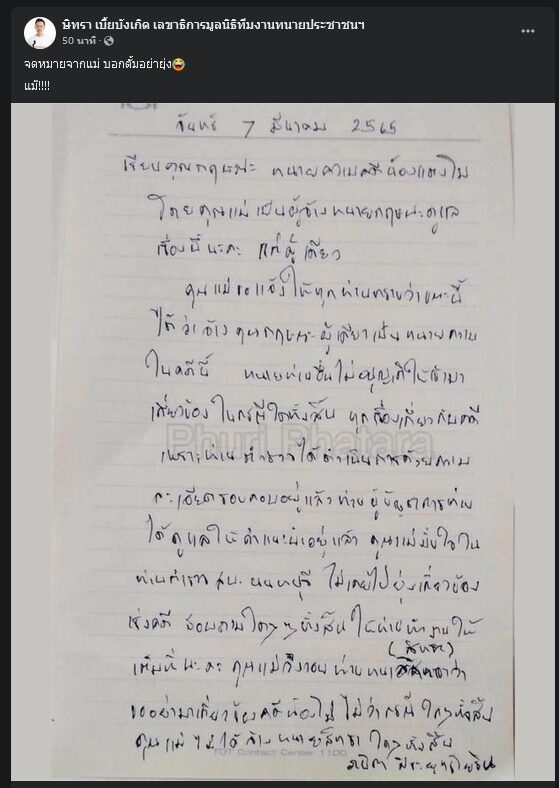 ษิทรา เบี้ยบังเกิด เลขาธิการมูลนิธิทีมงานทนายประชาชนฯ
50 นาที ·
จดหมายจากแม่ บอกตั้มอย่ายุ่ง😂
แม๊!!!!
จันทร์ 7 มีนาคม 2565
เรียนคุณกฤษณะ ทนายความคดีน้องแตงโม
โดยคุณแม่เป็นผู้จ้างทนายกฤษณะดูแล
เรื่องนี้นะคะ แต่ผู้เดียว
คุณแม่ขอแจ้งให้ทุกท่านทราบว่าขณะนี้
ได้ว่าจ้างคุณกฤษณะผู้เดียวเป็นทนายความ
ในคดีนี้ ทนายท่านอื่นไม่อนุญาตให้เข้ามา
เกี่ยวข้องในกรณีใดทั้งสิ้น ทุกเรื่องเกี่ยวกับคดี
Phuri Phatara
เพราะท่านตำรวจได้ดำเนินการด้วยความ
ละเอียดรอบคอบอยู่แล้ว ท่านผู้บัญชาการท่าน
ได้ดูแลให้คำแนะนำอยู่แล้ว คุณแม่มั่นใจใน
ท่านตำรวจ สภ. นนทบุรี ไม่เคยไปยุ่งเกี่ยวข้อง
เรื่องคดี สอบถามใดๆทั้งสิ้น ให้ท่านทำงานให้
(สิทรา)
เต็มที่นะคะ คุณแม่จึงวอนท่านทนาย ว่า
ขออย่ามาเกี่ยวข้องคดีน้องโม ไม่ว่ากรณีใดๆทั้งสิ้น
คุณแม่ไม่ได้จ้างทนายสิทรา ใดๆทั้งสิ้น
TOT Contact Center 1100
ภนิดา ศิระยุทธโยธิน